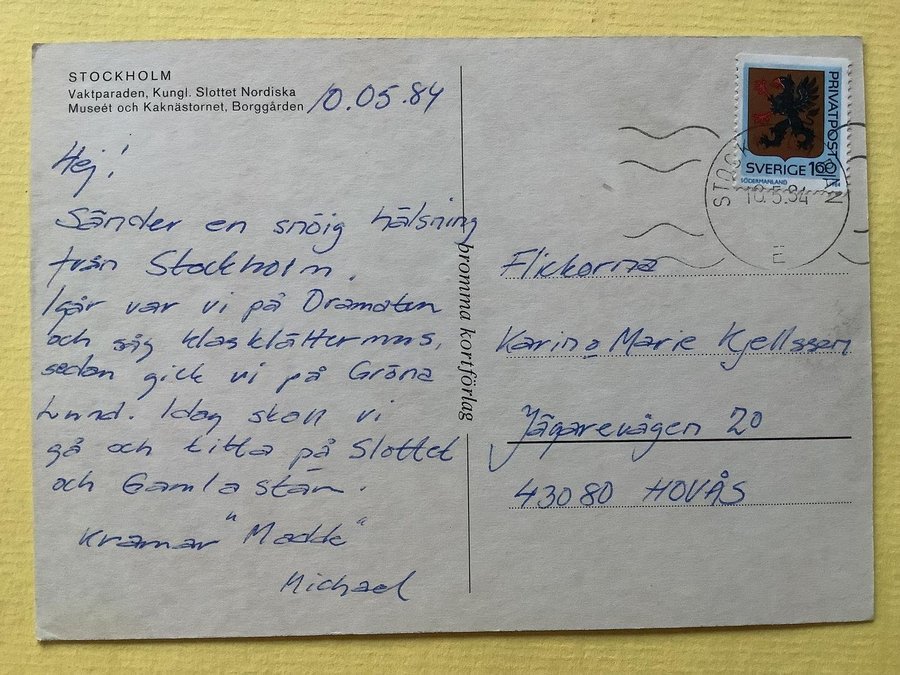 STOCKHOLM
Vaktparaden, Kungl. Slottet Nordiska
Museét och Kaknästornet, Borggården
10.05.84
Hej!
Sänder en snöig hälsning
från Stockholm.
Igår var vi på Dramaten
och såg klasklättermus,
sedan gick vi på Gröna
Lund. Idag skan vi
gå och titta på Slottet
och Gamla stan.
Kramar "Madde"
Michael
bromma kortförlag
PRIVATPOST
SVERIGE 160
SÖDERMANLAND
STOCK AN
10.5.84
E
Flickorna
Karin o Marie Kjellsson
Jägarevägen 20
43080 HOVÅS